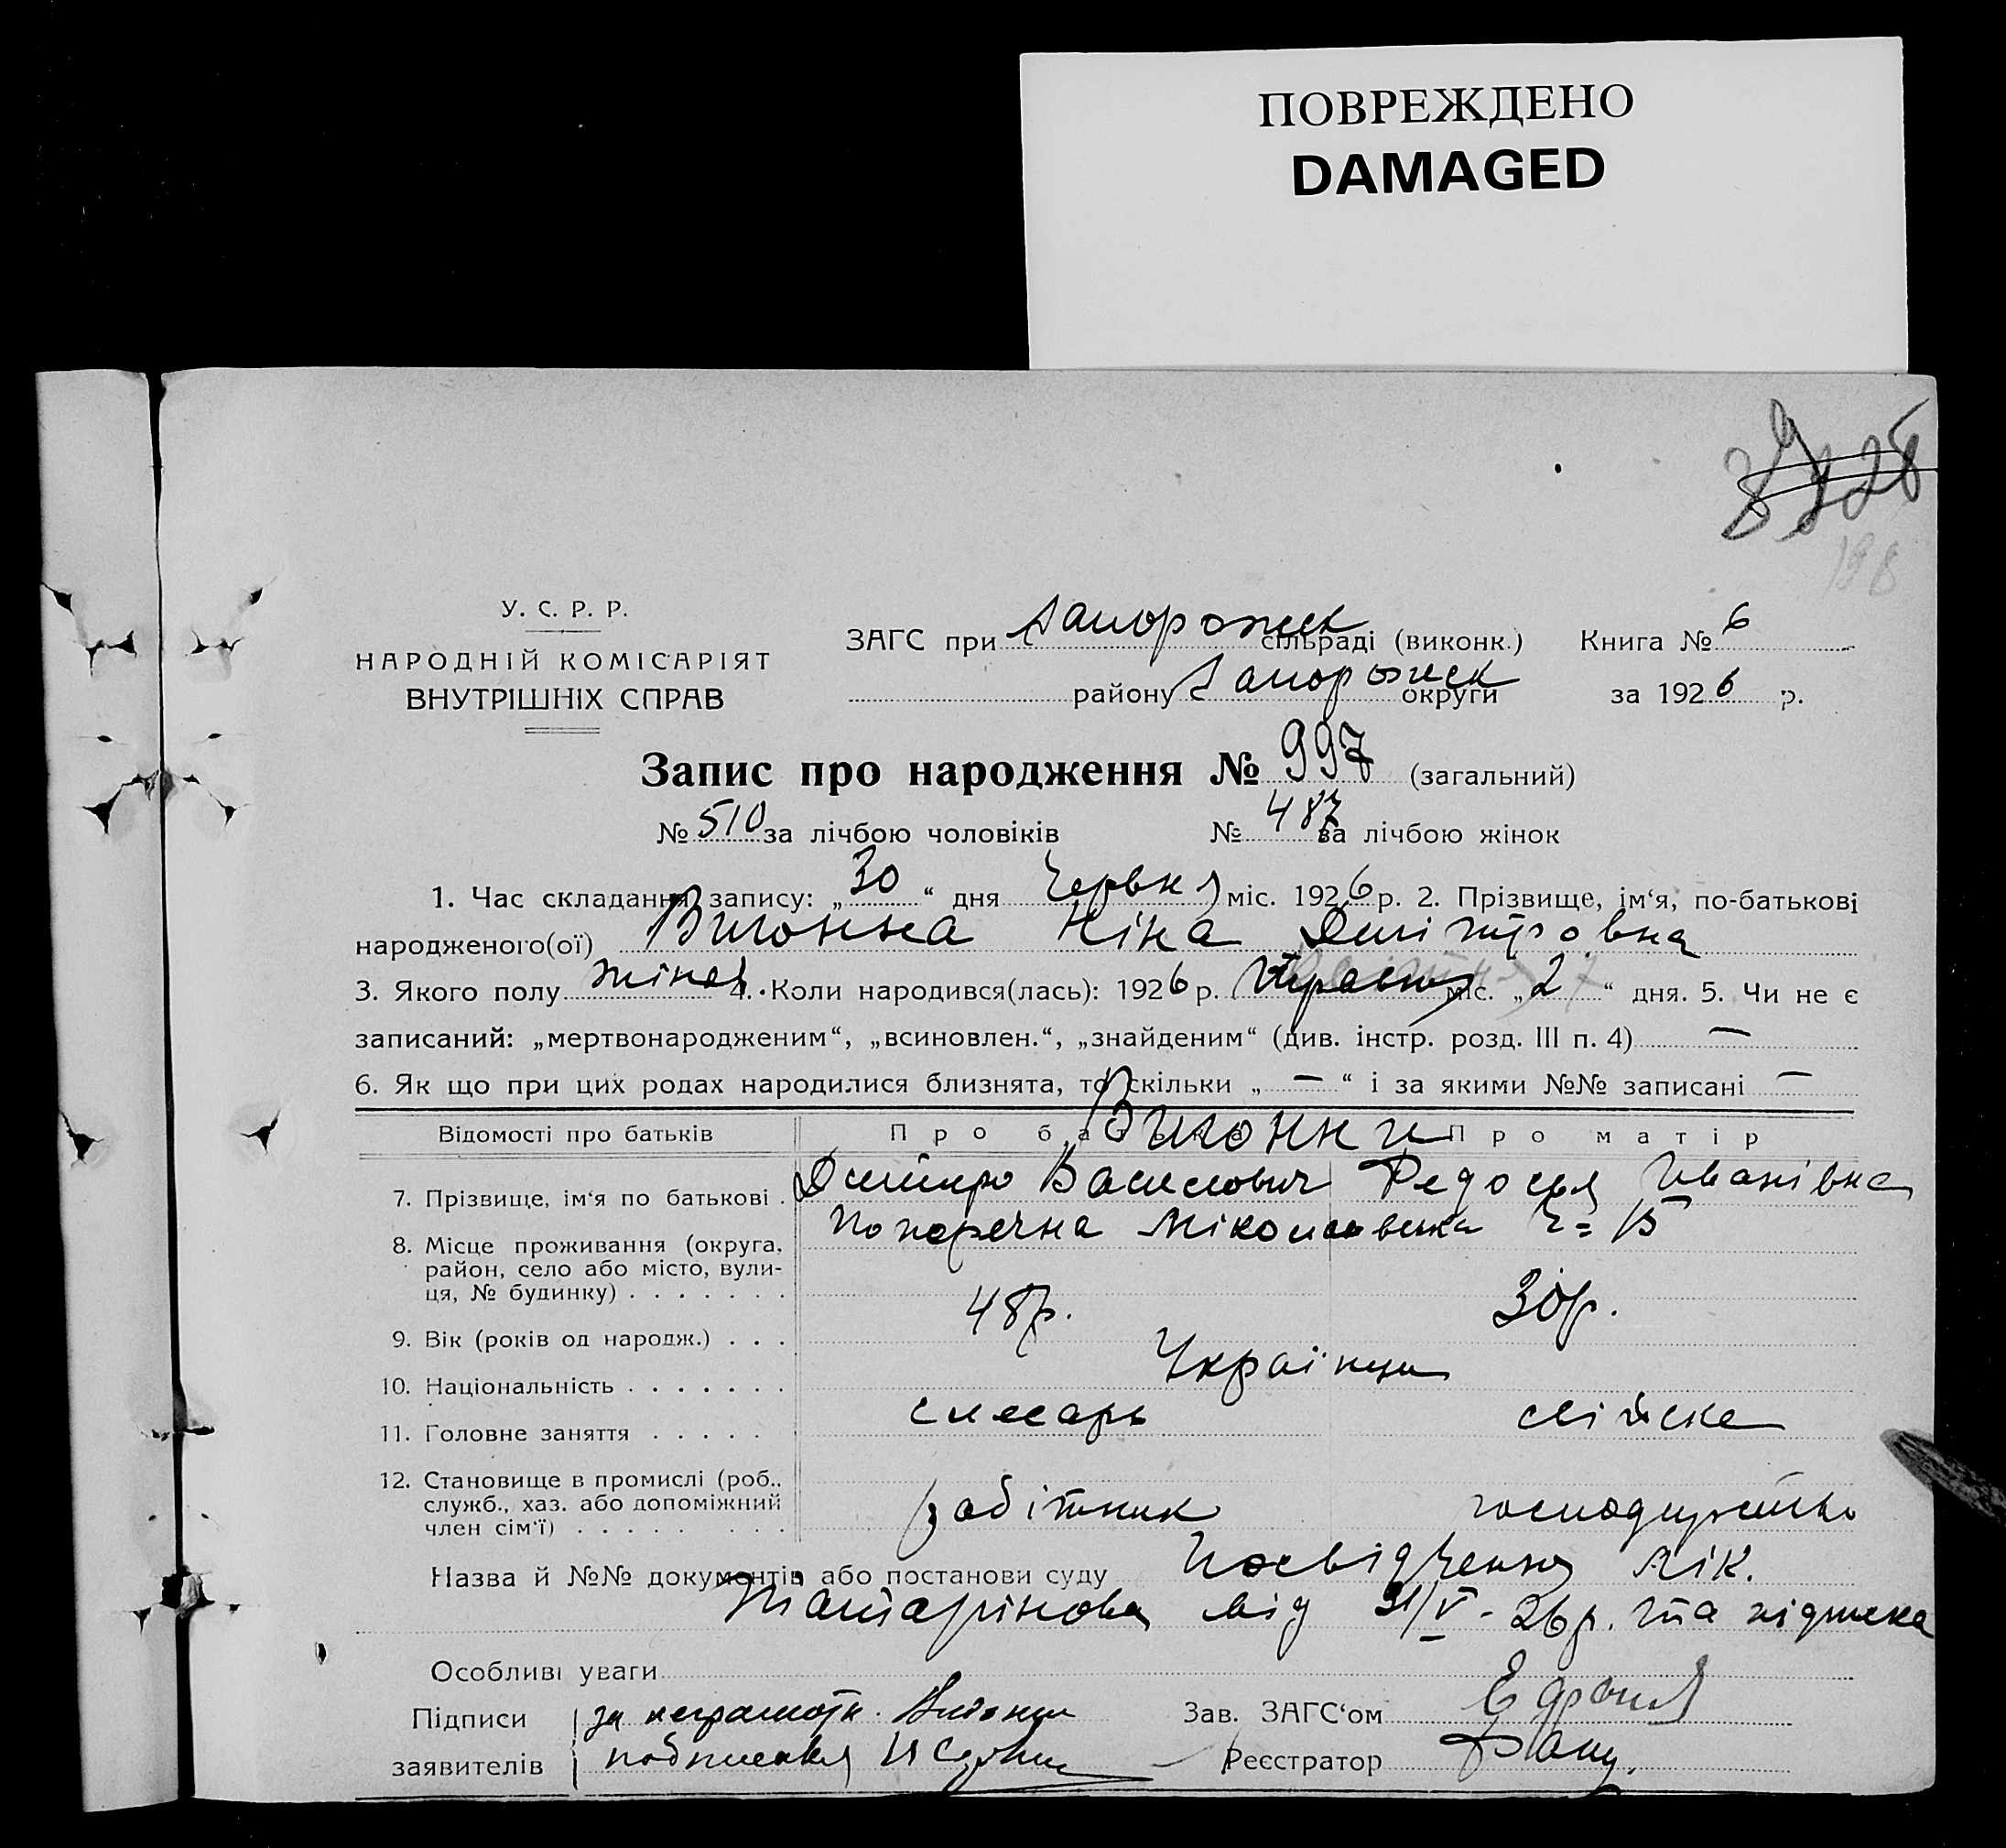 ПОВРЕЖДЕНО
DAMAGED
198
У. С. Р. Р.
НАРОДНІЙ КОМІСАРІЯТ
ВНУТРІШНІХ СПРАВ
ЗАГС при Запорожск сільраді (виконк.) Книга № 6
району Запорожск округи за 1926 р.
Запис про народження № 997 (загальний)
№ 510 за лічбою чоловіків № 487 за лічбою жінок
1. Час складання запису: „30“ дня Червня міс. 1926 р. 2. Прізвище, ім‘я, по-батькові
народженого(ої) Ніна Дмітровна
3. Якого полу жіноч 4. Коли народився(лась): 1926 р. Травня міс. „2“ дня. 5. Чи не є
записаний: „мертвонародженим“, „всиновлен.“, „знайденим“ (див. інстр. розд. III п. 4) —
6. Як що при цих родах народилися близнята, то скільки „—“ і за якими №№ записані —
Відомості про батьків Про батька Про матір
7. Прізвище, ім‘я по батькові . Дмитро Василович Федосья Іванівна
8. Місце проживання (округа, Поперечна Міколаевська ч= 15
район, село або місто, вули-
ця, № будинку) . . . . . . .
9. Вік (років од народж.) . . . 48 р. 30 р.
10. Національність . . . . . . . Українци
11. Головне заняття . . . . . слесарь
12. Становище в промислі (роб..
служб., хаз. або допоміжний
член сім‘ї) . . . . . . . . робітник господарство
Назва й №№ документів або постанови суду Посвідчення лік.
від 31/V - 26 р. та підписка
Особливі уваги
Підписи за неграмотн.
Зав. ЗАГС‘ом
заявителів
Реєстратор